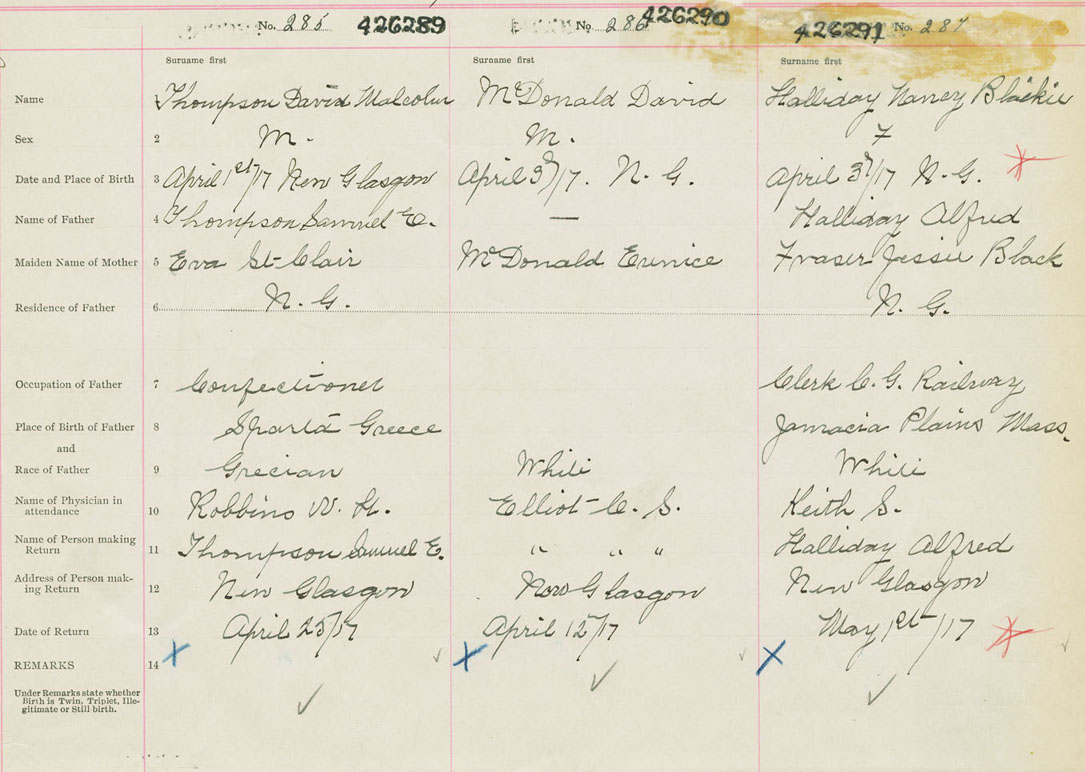 No. 285 426289 No. 286 426290 426291 No. 287
Surname first Surname first Surname first
Name Thompson David Malcolm McDonald David Halliday Nancy Blackie
Sex 2 M. M. F
Date and Place of Birth 3 April 1st/17 New Glasgow April 3rd/17. N. G. April 3rd/17 N. G.
Name of Father 4 Thompson Samuel E. — Halliday Alfred
Maiden Name of Mother 5 Eva St-Clair McDonald Eunice Fraser Jessie Black
Residence of Father 6 N. G. N. G.
Occupation of Father 7 Confectioner Clerk C. G. Railway
Place of Birth of Father 8 Sparta Greece Jamacia Plains Mass.
and
Race of Father 9 Grecian White White
Name of Physician in
attendance 10 Robbins W. H. Elliot C. S. Keith S.
Name of Person making
Return 11 Thompson Samuel E. " " " Halliday Alfred
Address of Person mak-
ing Return 12 New Glasgow New Glasgow New Glasgow
Date of Return 13 April 25/17 April 12/17 May 1st/17
REMARKS 14
Under Remarks state whether
Birth is Twin, Triplet, Ille-
gitimate or Still birth.